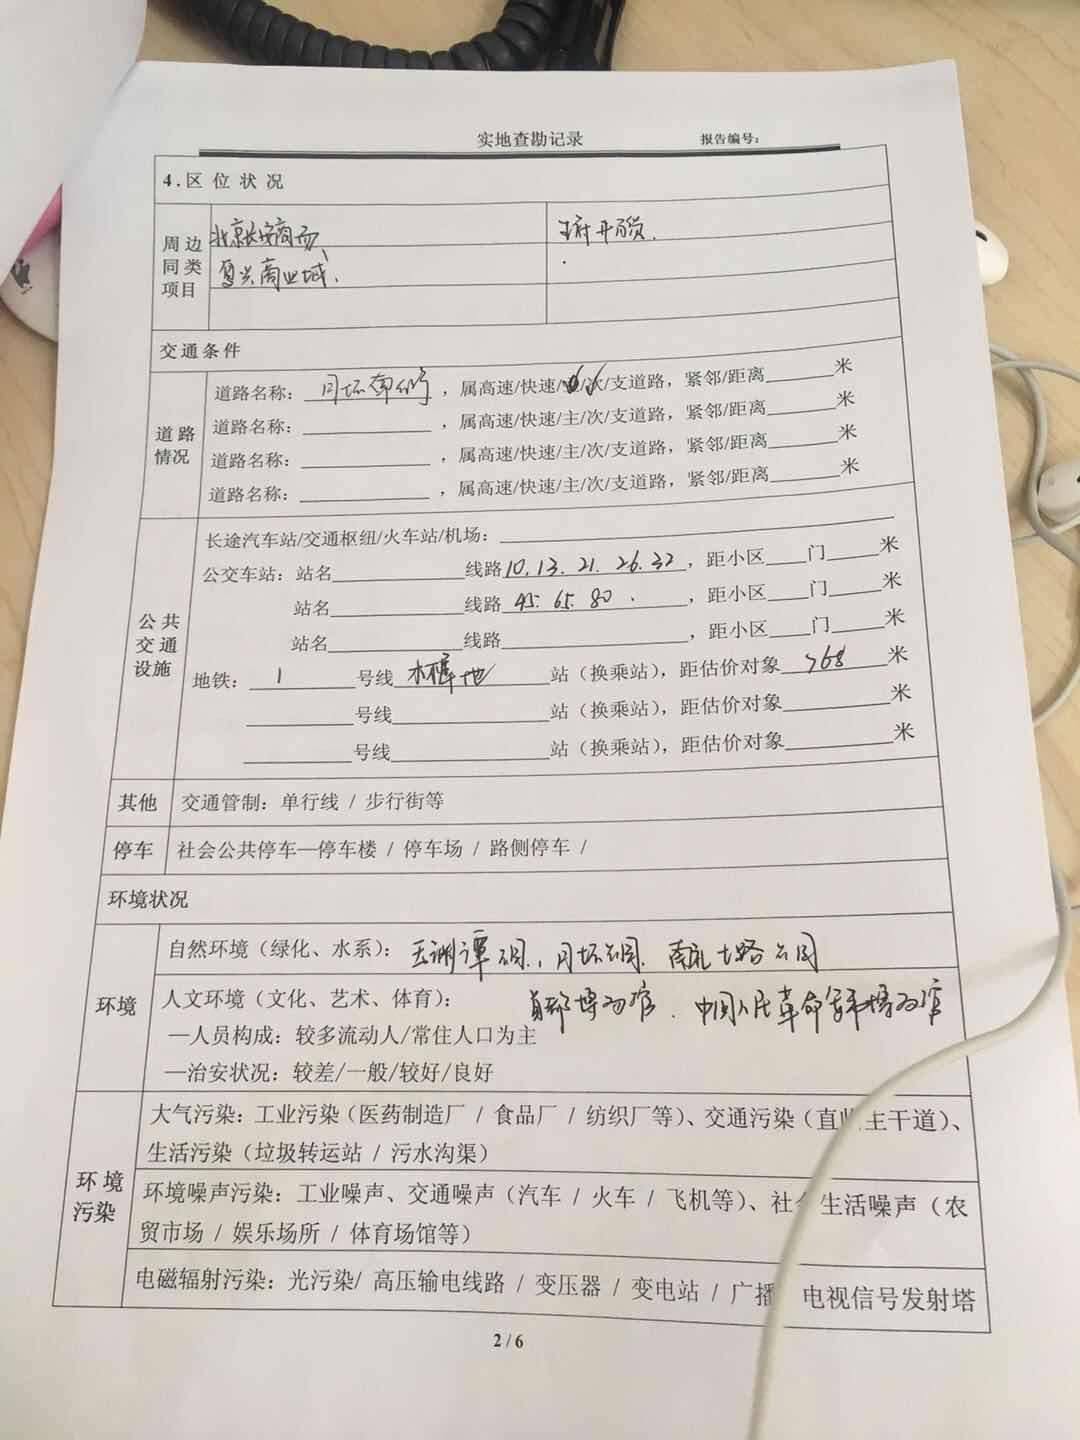 实地查勘记录 报告编号:
4.区位状况
周边同类项目 北京长安商场、
复兴商业城、
交通条件
道路情况 道路名称: 月坛南街 ,属高速/快速/主/次/支道路,紧邻/距离______米
道路名称:____________ ,属高速/快速/主/次/支道路,紧邻/距离______米
道路名称:____________ ,属高速/快速/主/次/支道路,紧邻/距离______米
道路名称:____________ ,属高速/快速/主/次/支道路,紧邻/距离______米
公共交通设施 长途汽车站/交通枢纽/火车站/机场:
公交车站:站名____________线路10.13.21.26.32,距小区____门____米
站名____________线路45.65.80.,距小区____门____米
站名____________线路____________,距小区____门____米
地铁: 1 号线 木樨地 站(换乘站),距估价对象 768 米
________号线____________站(换乘站),距估价对象________米
________号线____________站(换乘站),距估价对象________米
其他 交通管制:单行线 / 步行街等
停车 社会公共停车—停车楼 / 停车场 / 路侧停车 /
环境状况
环境 自然环境(绿化、水系): 玉渊潭公园、月坛公园、南礼士路公园
人文环境(文化、艺术、体育): 首都博物馆、中国人民革命军事博物馆
—人员构成:较多流动人/常住人口为主
—治安状况:较差/一般/较好/良好
环境污染 大气污染:工业污染(医药制造厂 / 食品厂 / 纺织厂等)、交通污染(直临主干道)、
生活污染(垃圾转运站 / 污水沟渠)
环境噪声污染:工业噪声、交通噪声(汽车 / 火车 / 飞机等)、社会生活噪声(农
贸市场 / 娱乐场所 / 体育场馆等)
电磁辐射污染:光污染/ 高压输电线路 / 变压器 / 变电站 / 广播 电视信号发射塔
2 / 6